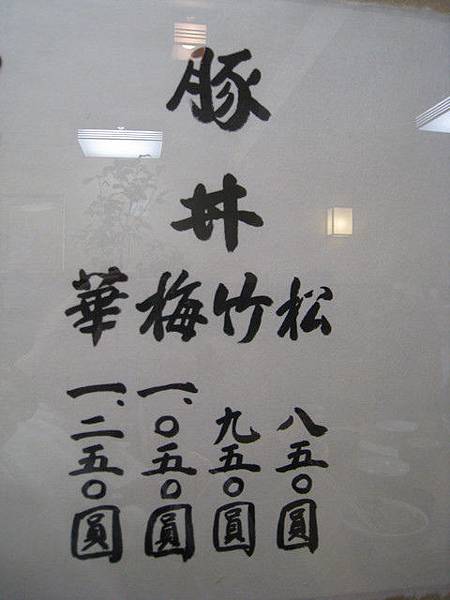 豚丼
松 八五〇圓
竹 九五〇圓
梅 一、〇五〇圓
華 一、二五〇圓